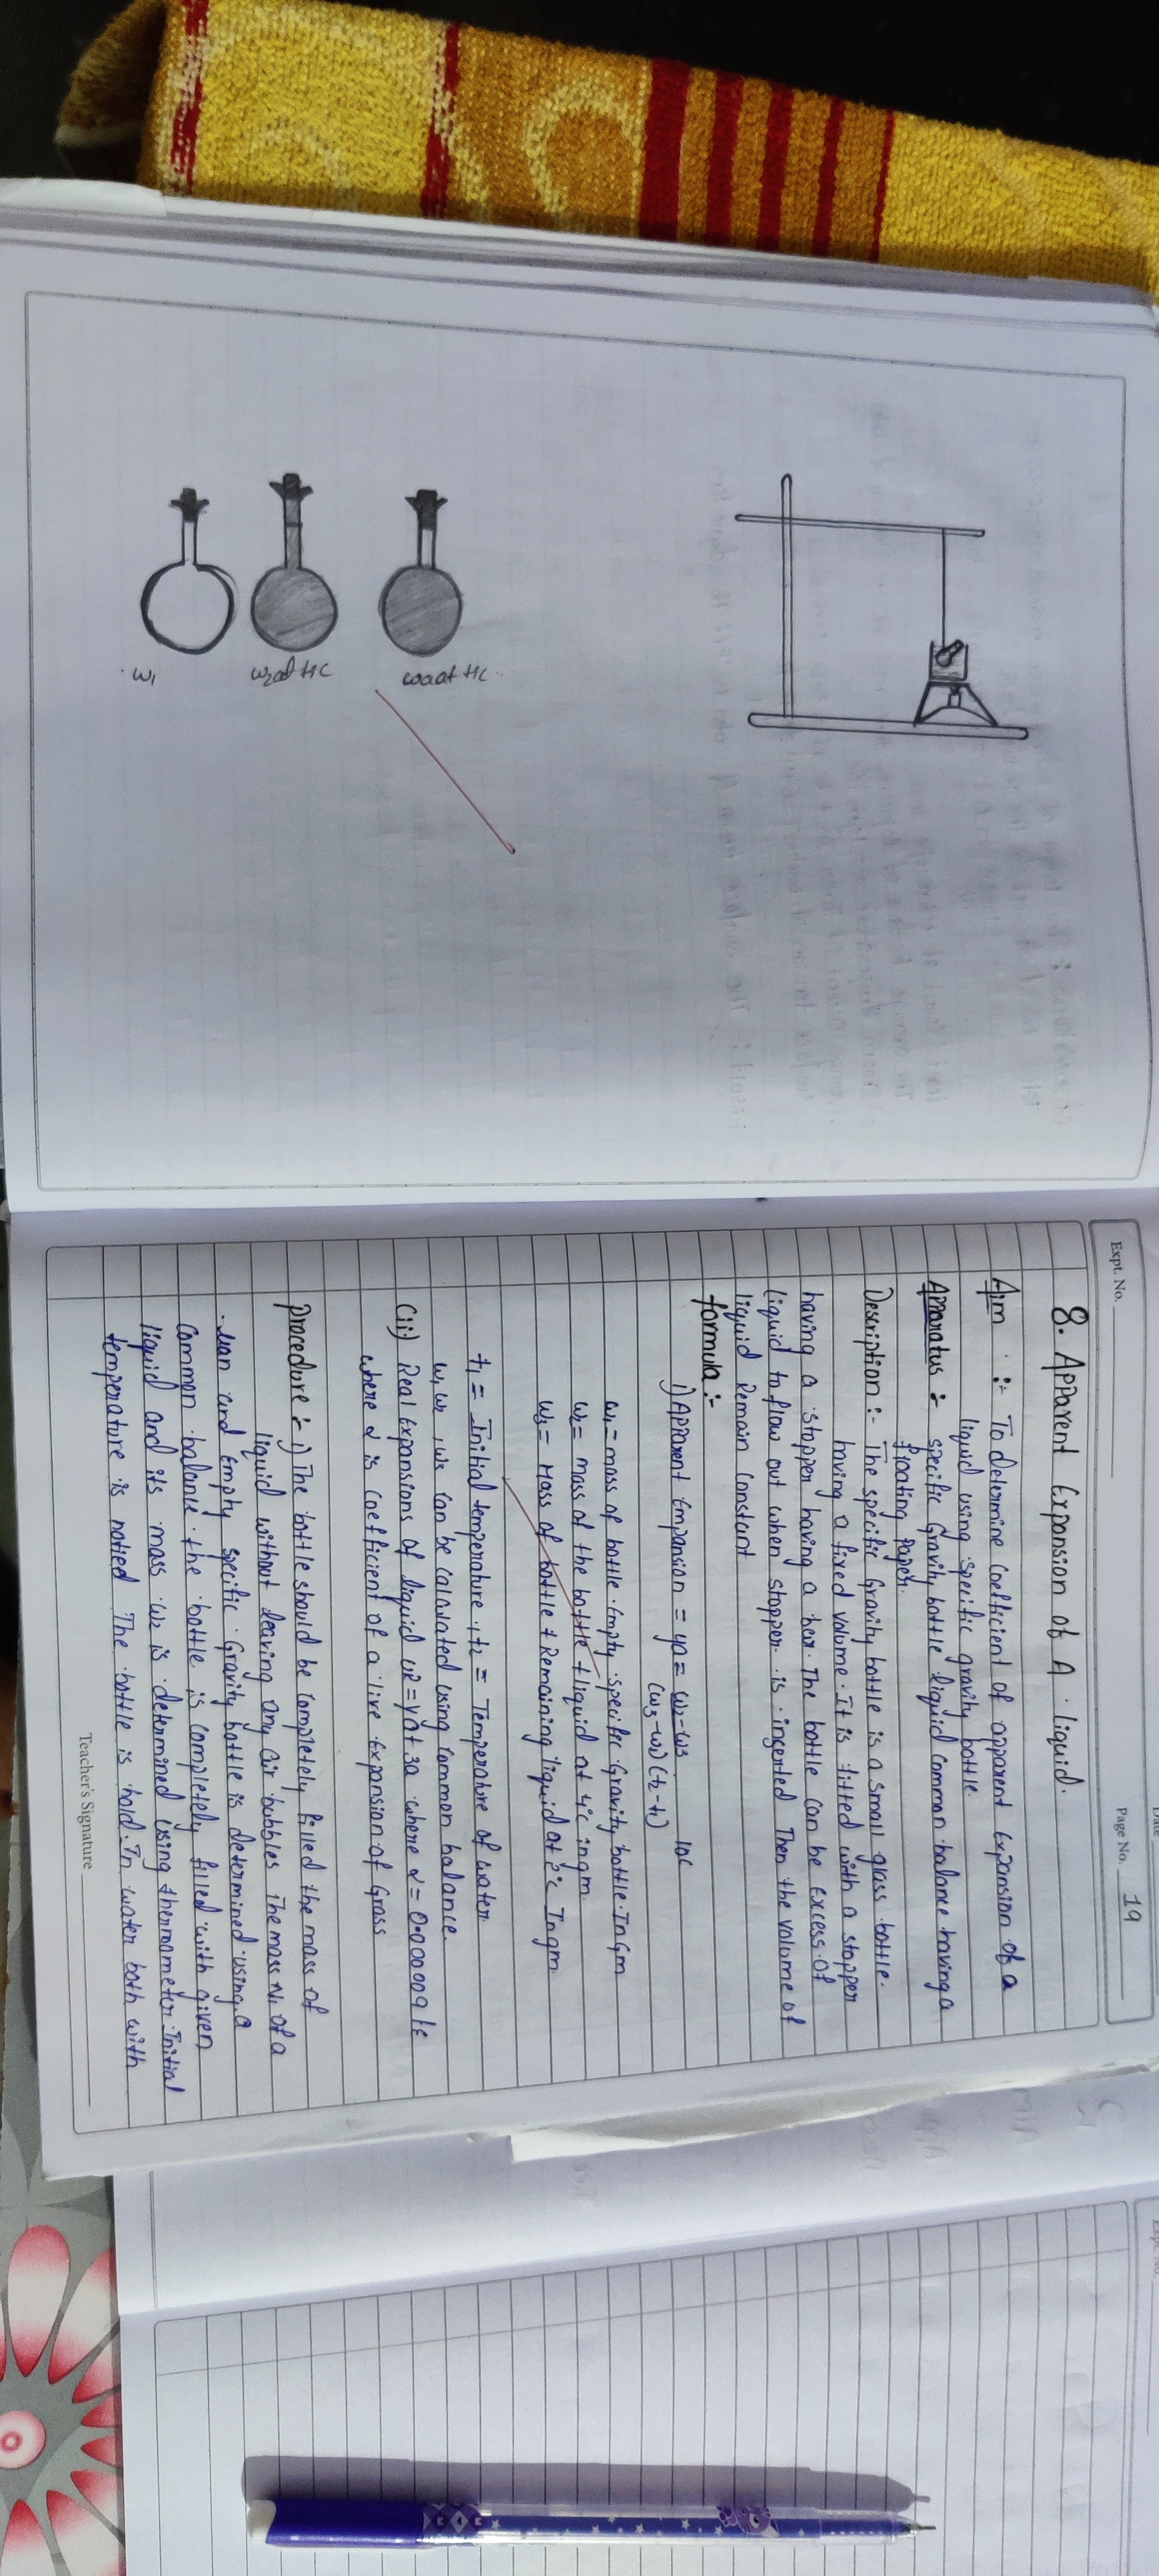 Expt. No.
Date
Page No. 19
8. Apparent Expansion of A liquid.
Aim :- To determine coefficient of apparent Expansion of a
liquid using specific gravity bottle.
Apparatus :- specific Gravity bottle liquid common balance having a
floating Paper.
Description :- The specific Gravity bottle is a small grass bottle.
having a fixed volume. It is fitted with a stopper
having a stopper having a bear. The bottle can be Excess of
liquid to flow out when stopper is ingerted Then the volume of
liquid Remain Constant
formula :-
i) Apparent Empansion = ya = w2-w3 / (w3-w1) (t2-t1) 10c
w1 = mass of bottle Empty specific Gravity bottle. In Gm
w2 = mass of the bottle + liquid at t1c in gm
w3 = Mass of bottle + Remaining liquid at t2c In gm
t1 = Initial temperature, t2 = Temperature of water
w1 w2, w3 can be calculated using common balance
(ii) Real Expansions of liquid = ya + 3α where α = 0.000009 /c
where α is coefficient of a live Expansion of Grass
Procedure :- i) The bottle should be completely filled the mass of
liquid without leaving any air bubbles The mass w1 of a
and Empty specific Gravity bottle is determined using a
common balance the bottle is completely filled with given
liquid and its mass w2 is determined using thermometer Initial
temperature is notied The bottle is hold. In water both with
Teacher's Signature
w1
w2at t1c